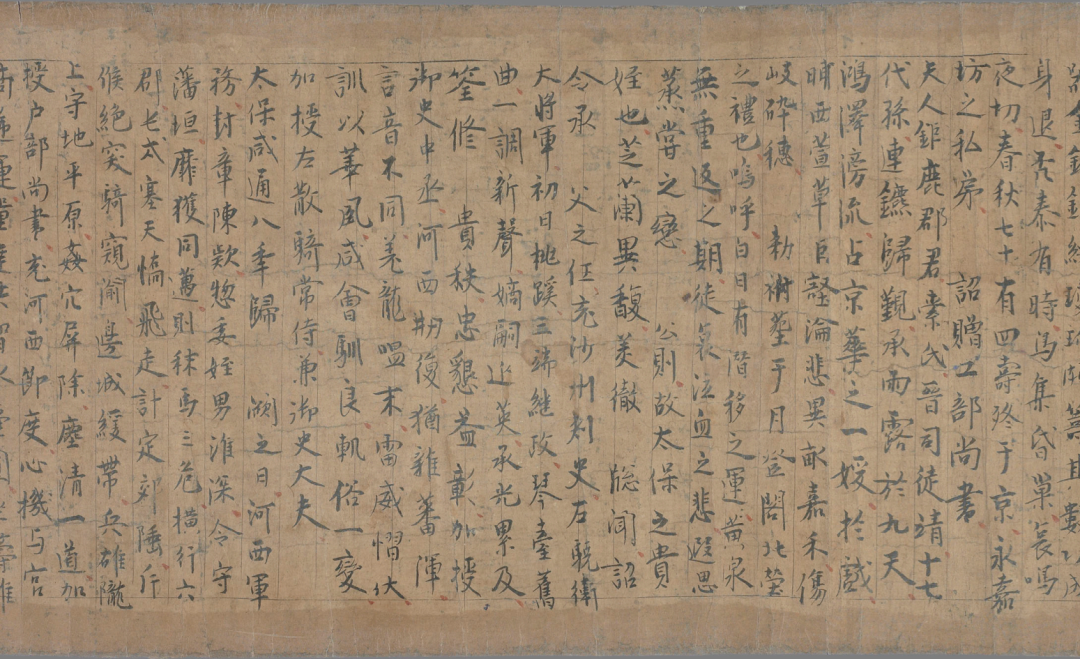 身退秀泰有時為集昏巢哀鳴
夜切春秋七十有四壽終于京永嘉
坊之私第 詔贈工部尚書
夫人鉅鹿郡君索氏晉司徒靖十七
代孫連鑣歸覲承雨露於九天
鴻澤滂流占京華之一 於戲
晡西萱草巨壑淪悲異畝嘉禾傷
岐碎穗 勑祔葬于月登閣北塋
之禮也嗚呼白日有潛移之運黃泉
無重返之期徒哀泣血之悲遐思
蒸嘗之戀 公則故太保之貴
姪也芝蘭異馥美徹 牕聞詔
令承 父之任充沙州刺史左驍衛
大將軍初日桃蹊三緯繼政琴臺舊
曲一調新聲嫡嗣延英承光累及
筌修 貴秩忠懇益彰加授
御史中丞河西刱復猶雜蕃渾
言音不同羌龍嗢末雷威慴伏
訓以華風咸會馴良軌俗一變
加授左散騎常侍兼御史大夫
太保咸通八年歸 闕之日河西軍
務封章陳欵惣委姪男淮深令守
藩垣靡獲同邁則秣馬三危橫行六
郡屯戍塞天憍飛走計定郊陲斥
候絕突騎窺窬邊城緩帶兵雄隴
上守地平原姦宄屏除塵清一道加
授户部尚書充河西節度心機与宮